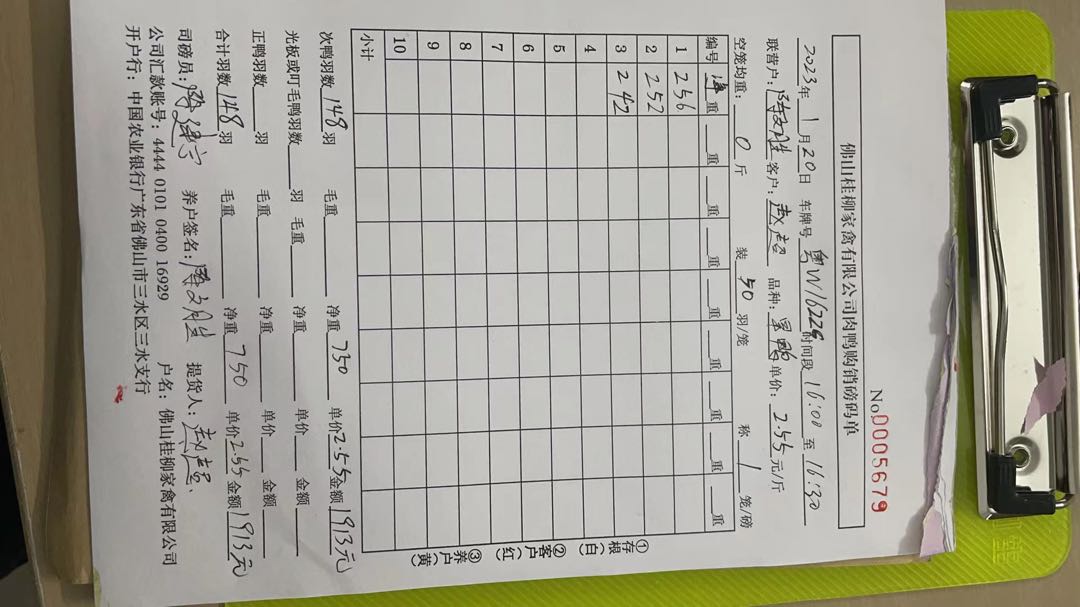 佛山桂柳家禽有限公司肉鸭购销磅码单
No 0005679
2023年1月20日 车牌号 粤W16229 时间段 16:00 至 16:30
联营户: 客户: 品种: 单价: 2.55 元/斤
空笼均重: 0 斤 装 50 羽/笼 称 1 笼/磅
编号 重 重 重 重 重 重 重 重 重
1 256
2 252
3 242
4
5
6
7
8
9
10
小计
①存根(白) ②客户(红) ③养户(黄)
次鸭羽数 148 羽 毛重 净重 750 单价 2.55 金额 1913元
光板或叮毛鸭羽数 羽 毛重 净重 单价 金额
正鸭羽数 羽 毛重 净重 单价 金额
合计羽数 148 羽 毛重 净重 750 单价 2.55 金额 1913元
司磅员: 养户签名: 提货人:
公司汇款账号: 4444 0101 0400 16929 户名: 佛山桂柳家禽有限公司
开户行: 中国农业银行广东省佛山市三水区三水支行